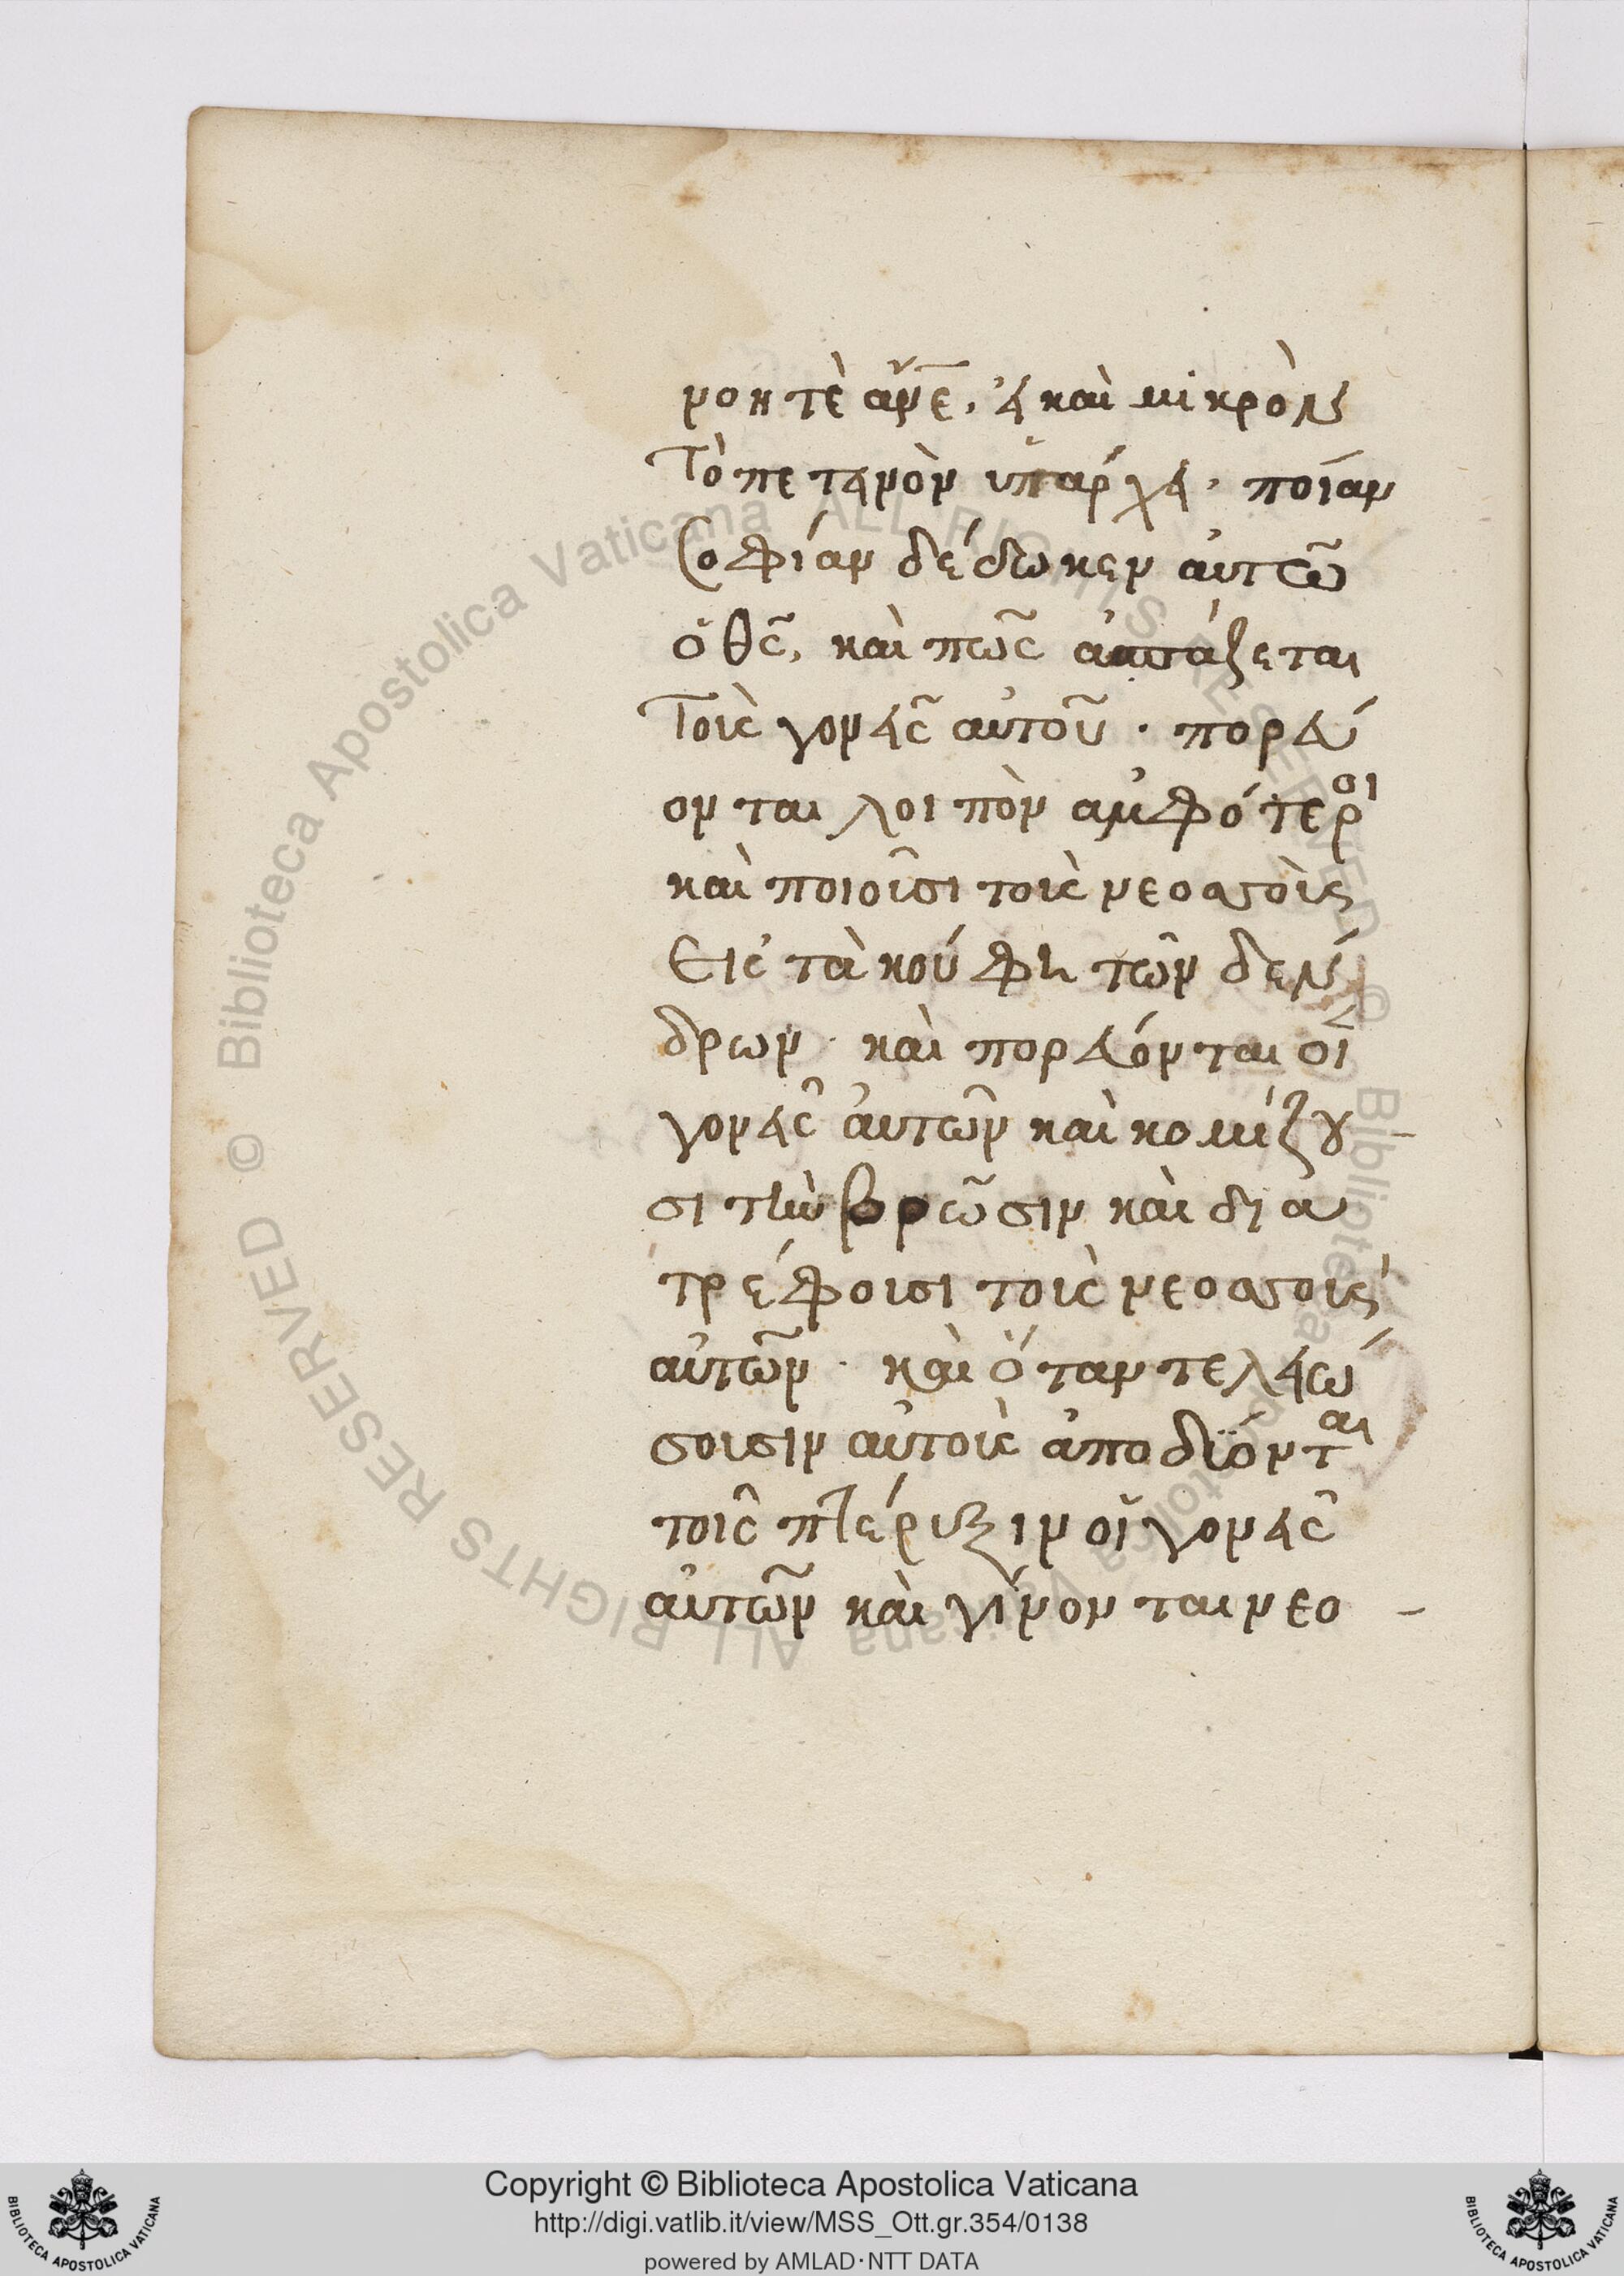 νοητὲ ἄνε, εἰ καὶ μικρὸν
τὸ πετεινὸν ὑπάρχει· ποίαν
σοφίαν δέδωκεν αὐτῶ
ὁ θς̃, καὶ πῶς
τοὶς γονεῖς αὐτοῦ· πορεύ
ονται λοιπὸν ἀμφότεροι
καὶ ποιοῖσι τοὶς νεοσσοὶς
εἰς τὰ κούφη τῶν δέν
δρων· καὶ πορεύονται οἱ
γονεῖς αὐτῶν καὶ κομίζου
σι τὴν βρῶσιν καὶ δια
τρέφοισι τοὶς νεοσσοις
αὐτῶν· καὶ ὅταν τελειώ
σοισιν αὐτοὶς ἀποδϊόνται
τοῖς πτέρυξιν οἱ γονεῖς
αὐτῶν καὶ γίνονται νεο
Biblioteca Apostolica Vaticana ALL RIGHTS RESERVED ©
Copyright © Biblioteca Apostolica Vaticana
http://digi.vatlib.it/view/MSS_Ott.gr.354/0138
powered by AMLAD·NTT DATA
BIBLIOTECA APOSTOLICA VATICANA
BIBLIOTECA APOSTOLICA VATICANA